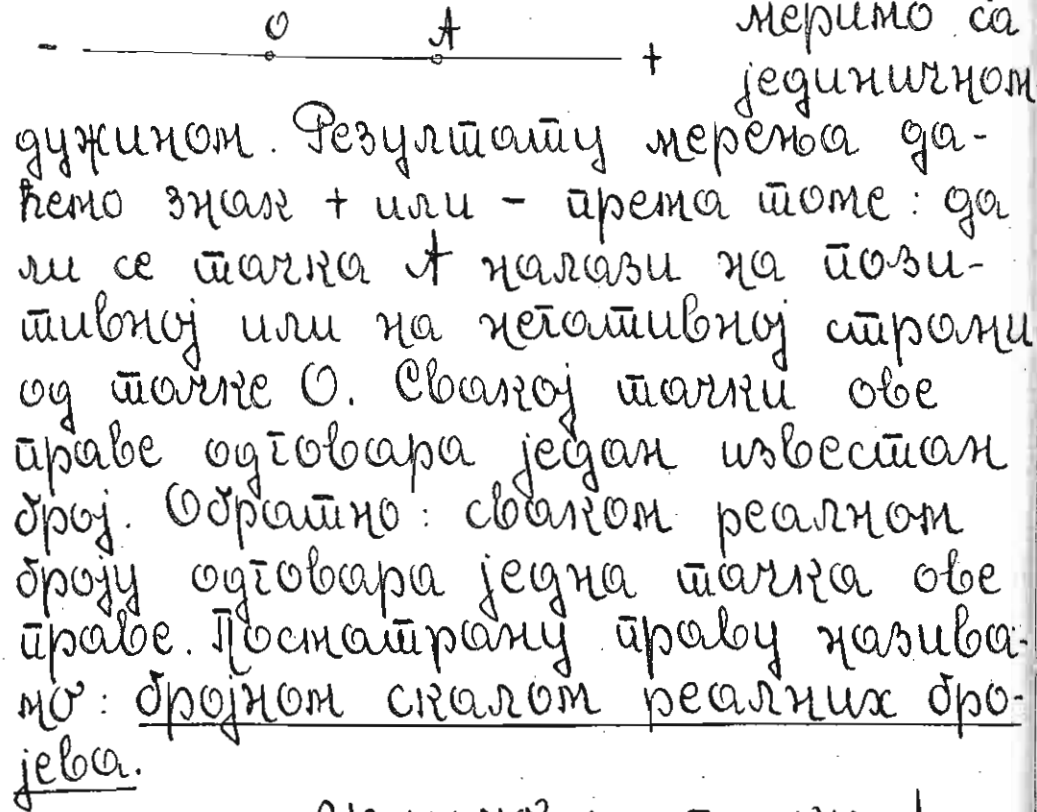 меримо са
- O A +
јединичном
дужином. Резултату мерења да-
ћемо знак + или - према томе: да
ли се тачка A налази на пози-
тивној или на негативној страни
од тачке O. Свакој тачки ове
праве одговара један известан
број. Обратно: сваком реалном
броју одговара једна тачка ове
праве. Посматрану праву назива-
мо: бројном скалом реалних бро-
јева.